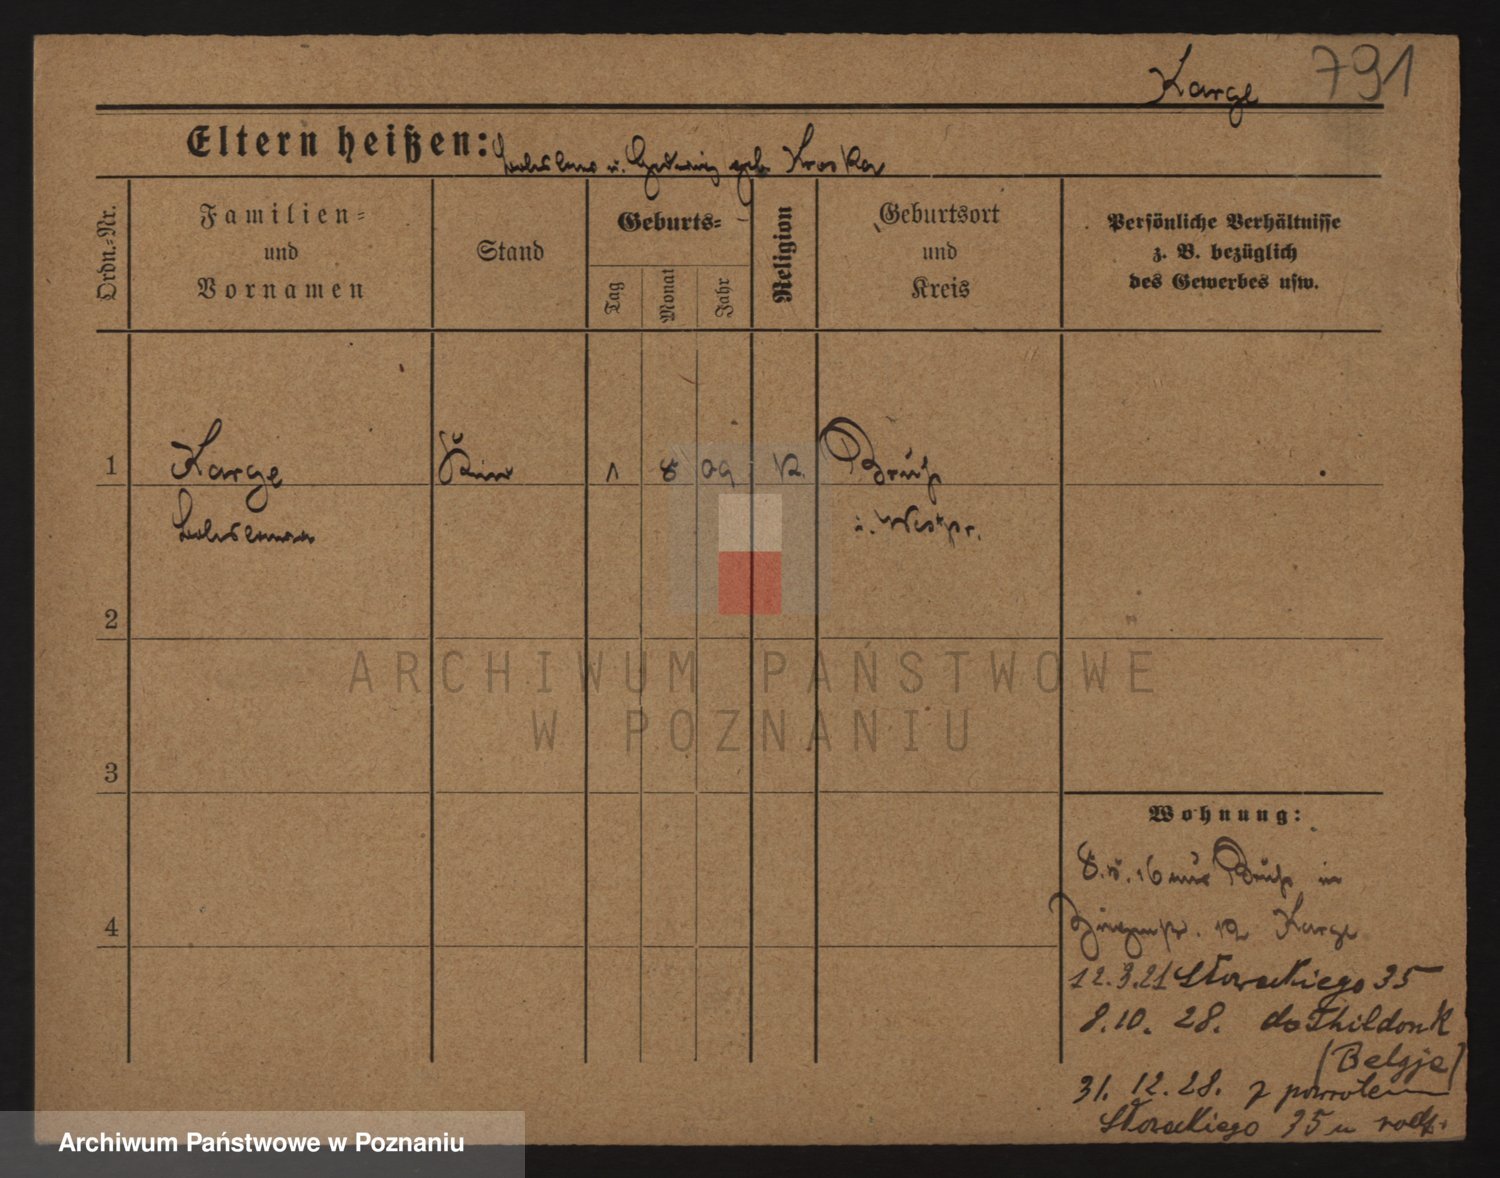 Karge 791
Eltern heißen: Ladislaus u. Hedwig geb. Kroska
Ordn.=Nr.
Familien=
und
Vornamen
Stand
Geburts=
Tag
Monat
Jahr
Religion
Geburtsort
und
Kreis
Persönliche Verhältnisse
z. B. bezüglich
des Gewerbes usw.
1 Karge 1 8 09 K. Bruß
i. Westpr.
2
3
4
Wohnung:
Bruß in
12 Karge
12.3.21 Słowackiego 35
8.10. 28. do Thildonk
(Belgje)
31. 12. 28. z powrotem
Słowackiego 35 u rodz.
ARCHIWUM PAŃSTWOWE
W POZNANIU
Archiwum Państwowe w Poznaniu